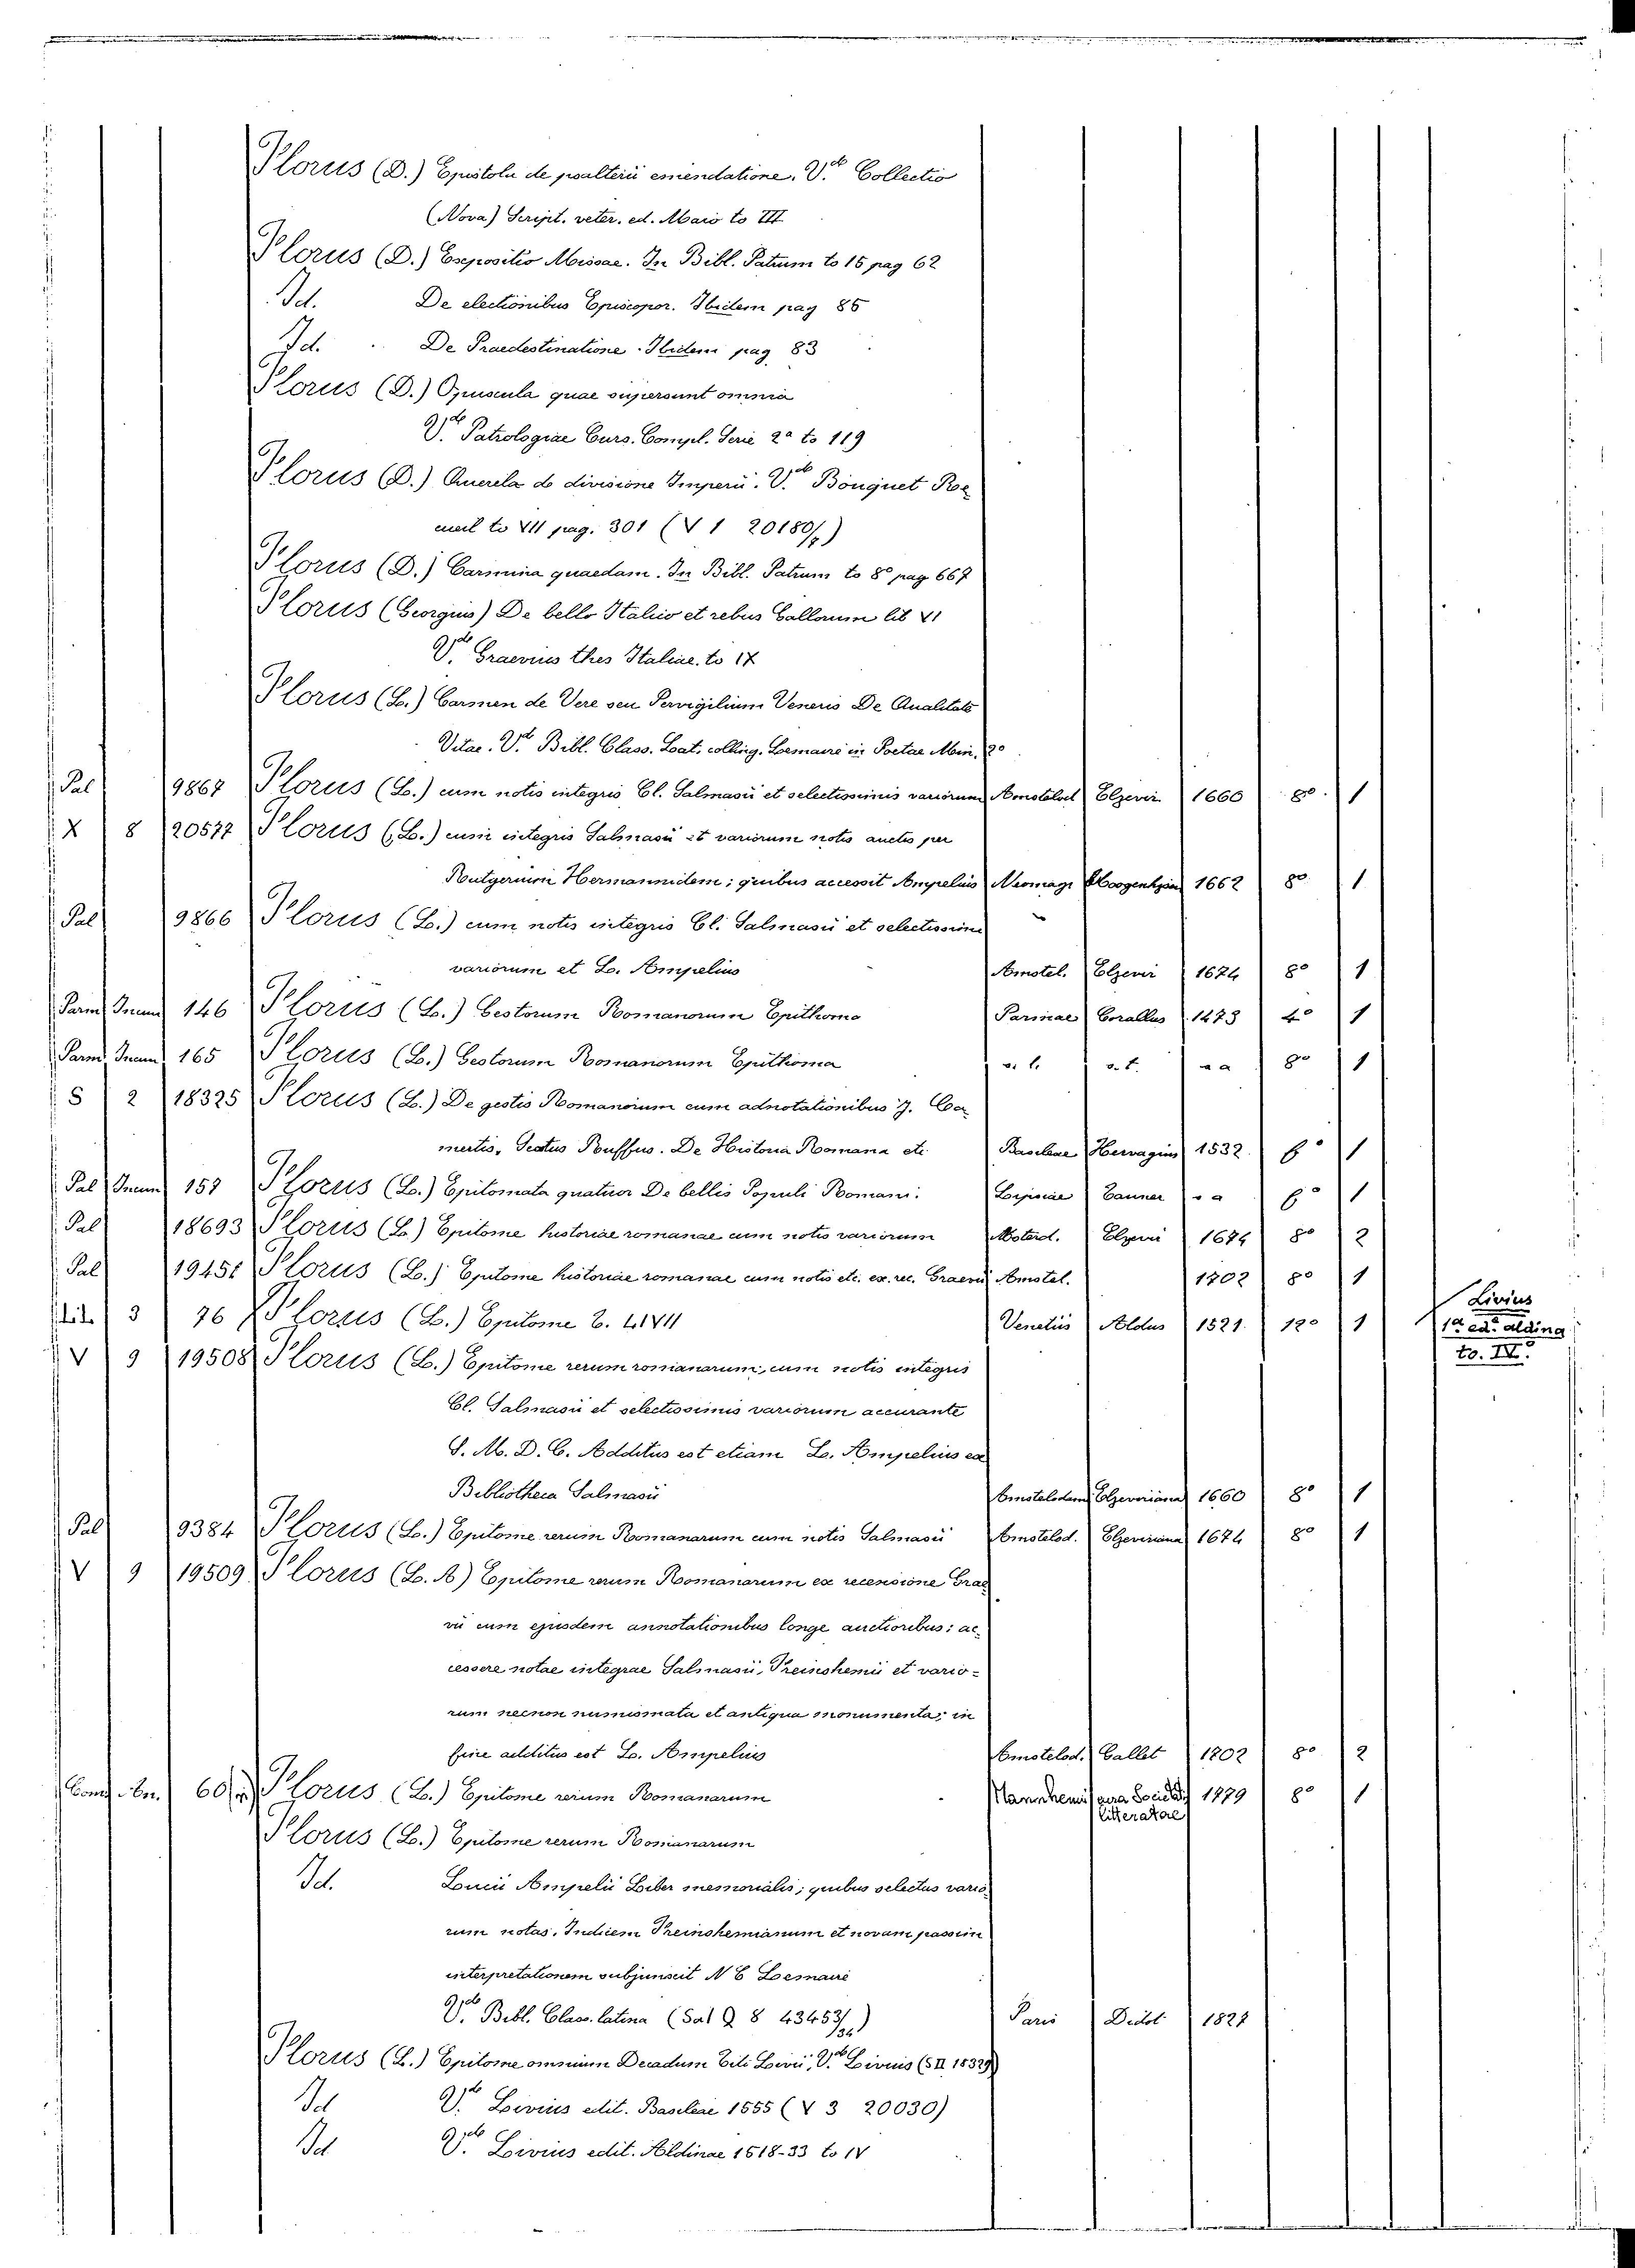 Florus (D.) Epistola de psalterii emendatione. V.de Collectio
(Nova) Script. veter. ed. Maio to III
Florus (D.) Expositio Missae. In Bibl. Patrum to 15 pag 62
Id. De electionibus Episcopor. Ibidem pag 85
Id. De Praedestinatione. Ibidem pag 83
Florus (D.) Opuscula quae supersunt omnia
V.de Patrologiae Curs. Compl. Serie 2a to 119
Florus (D.) Querela de divisione Imperii. V.de Bouquet Re
cueil to VII pag. 301 (V 1 20180/7)
Florus (D.) Carmina quaedam. In Bibl. Patrum to 8o pag 667
Florus (Georgius) De bello Italico et rebus Gallorum lib VI
V.de Graevius thes Italiae. to IX
Florus (L.) Carmen de Vere seu Pervigilium Veneris De Qualitate
Vitae. V.de Bibl. Class. Lat. colling. Lemaire in Poetae Min. 2o
Pal 9867 Florus (L.) cum notis integris Cl. Salmasii et selectissimis variorum Amstelod Elzevir 1660 8o 1
X 8 20577 Florus (L.) cum integris Salmasii et variorum notis auctis per
Rutgerium Hermannidem; quibus accessit Ampelius Neomagi Hoogenhuisen 1662 8o 1
Pal 9866 Florus (L.) cum notis integris Cl. Salmasii et selectissime
variorum et L. Ampelius Amstel. Elzevir 1674 8o 1
Parm Incun 146 Florus (L.) Gestorum Romanorum Epithoma Parmae Corallus 1473 4o 1
Parm Incun 165 Florus (L.) Gestorum Romanorum Epithoma s. l. s. t. s a 8o 1
S 2 18325 Florus (L.) De gestis Romanorum cum adnotationibus J. Ca
mertis, Sextus Ruffus. De Historia Romana etc Basileae Hervagius 1532 fo 1
Pal Incun 157 Florus (L.) Epitomata quatuor De bellis Populi Romani. Lipsiae Tanner s a fo 1
Pal 18693 Florus (L.) Epitome historiae romanae cum notis variorum Amsterd. Elzevir 1674 8o 2
Pal 19451 Florus (L.) Epitome historiae romanae cum notis etc. ex. rec. Graevii Amstel. 1702 8o 1
Livius
3 76 Florus (L.) Epitome T. LIVII Venetiis Aldus 1521 12o 1 1a ed. aldina
to. IV.
V 9 19508 Florus (L.) Epitome rerum romanarum, cum notis integris
Cl. Salmasii et selectissimis variorum accurante
S. M. D. C. Additus est etiam L. Ampelius ex
Bibliotheca Salmasii Amstelodam Elzeveriana 1660 8o 1
Pal 9384 Florus (L.) Epitome rerum Romanarum cum notis Salmasii Amstelod. Elzeviriana 1674 8o 1
V 9 19509 Florus (L. A) Epitome rerum Romanarum ex recensione Grae
vii cum ejusdem annotationibus longe auctioribus: ac
cessere notae integrae Salmasii, Freinshemii et vario-
rum necnon numismata et antiqua monumenta, in
fine additus est L. Ampelius Amstelod. Gallet 1702 8o 2
60 Florus (L.) Epitome rerum Romanarum Mannhemi cura Societatis 1779 8o 1
litteratae
Florus (L.) Epitome rerum Romanarum
Id. Lucii Ampelii Liber memorialis; quibus selectas vario
rum notas, Indicem Freinshemianum et novam passim
interpretationem subjunxit N E Lemaire
V.de Bibl. Class. latina (Sal Q 8 43453/34) Paris Didot 1827
Florus (L.) Epitome omnium Decadum Titi Livii, V.de Livius (S II 18329)
Id V.de Livius edit. Basileae 1555 (V 3 20030)
Id V.de Livius edit. Aldinae 1518-33 to IV